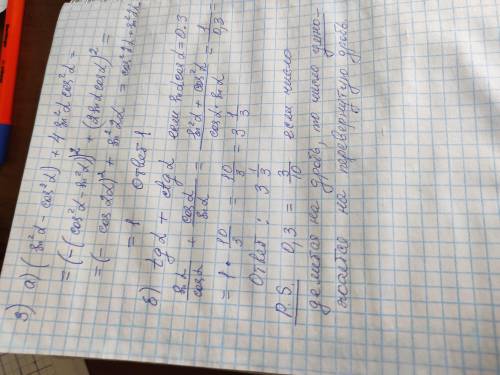 3) a) (sin²α - cos²α) + 4 sin²α cos²α =
= (-(cos²α - sin²α))² + (2 sinα cosα)² =
= (- cos2α)² + sin²2α = cos²2α + sin²2α
= 1 Ответ 1
б) tgα + ctgα если sinα cosα = 0,3
sinα/cosα + cosα/sinα = (sin²α + cos²α)/(cosα · sinα) = 1/0,3 =
= 1 · 10/3 = 10/3 = 3 1/3
Ответ: 3 1/3
P.S. 0,3 = 3/10 если число
делится на дробь, то число умно-
жается на перевернутую дробь.